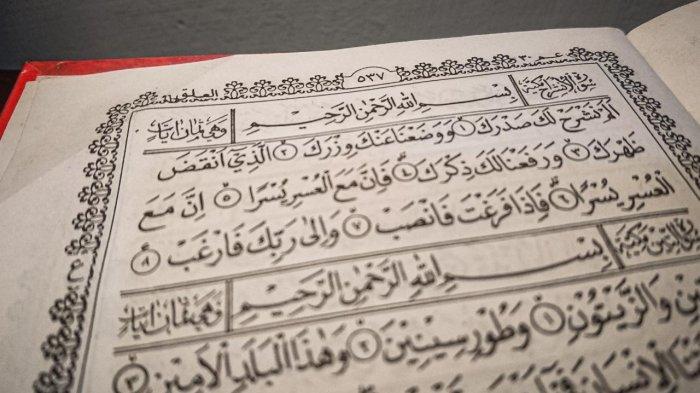 عـم ٣٠ ٥٣٧
سورة الانشراح مكية بِسْمِ اللهِ الرَّحْمٰنِ الرَّحِيْمِ وهي ثمان ايات
اَلَمْ نَشْرَحْ لَكَ صَدْرَكَ ١ وَوَضَعْنَا عَنْكَ وِزْرَكَ ٢ الَّذِيْٓ اَنْقَضَ
ظَهْرَكَ ٣ وَرَفَعْنَا لَكَ ذِكْرَكَ ٤ فَاِنَّ مَعَ الْعُسْرِ يُسْرًا ٥ اِنَّ مَعَ
الْعُسْرِ يُسْرًا ٦ فَاِذَا فَرَغْتَ فَانْصَبْ ٧ وَاِلٰى رَبِّكَ فَارْغَبْ ٨
سورة التين مكية بِسْمِ اللهِ الرَّحْمٰنِ الرَّحِيْمِ وهي ثمان ايات
وَالزَّيْتُوْنِ ١ وَطُوْرِ سِيْنِيْنَ ٢ وَهٰذَا الْبَلَدِ الْاَمِيْنِ ٣
الْاِنْسَانَ